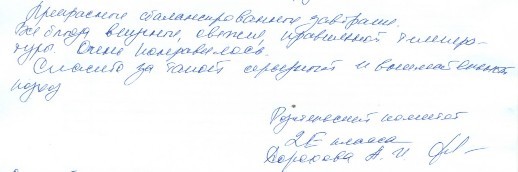 Прекрасные сбалансированные завтраки.
Все блюда вкусные, свежие, правильной темпера-
туры. Очень понравилось.
Спасибо за такой серьёзный и внимательный
подход
Родительский комитет
2Е класса
Дорохова А. И